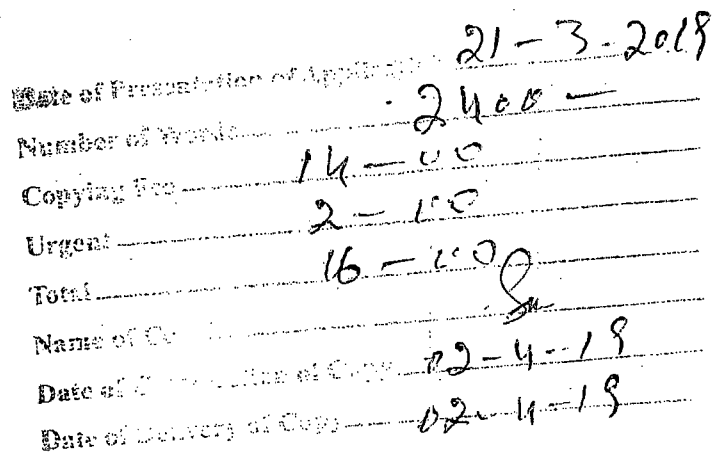 Date of Presentation of Application 21-3-2019
Number of Words 2400 —
Copying Fee 14-00
Urgent 2-00
Total 16-00
Name of
Date of of Copy 02-4-19
Date of Delivery of Copy 02-4-19